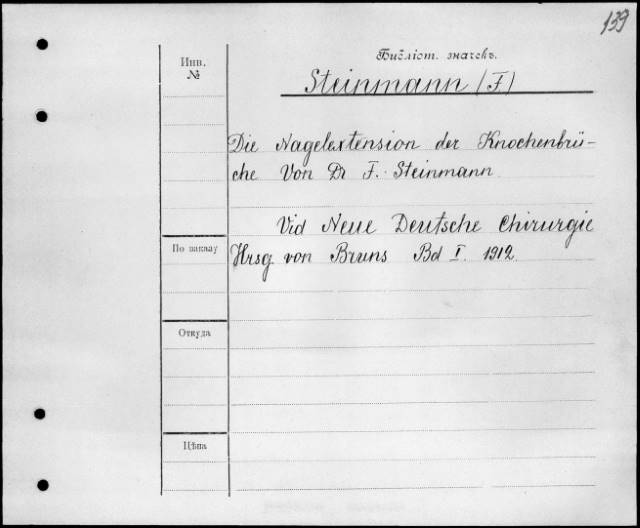 139
Инв.
№
Библіот. значекъ.
Steinmann (F)
Die Nagelextension der Knochenbrü-
che Von Dr F. Steinmann
Vid Neue Deutsche Chirurgie
По заказу
Hrsg. von Bruns Bd I. 1912.
Откуда
Цѣна